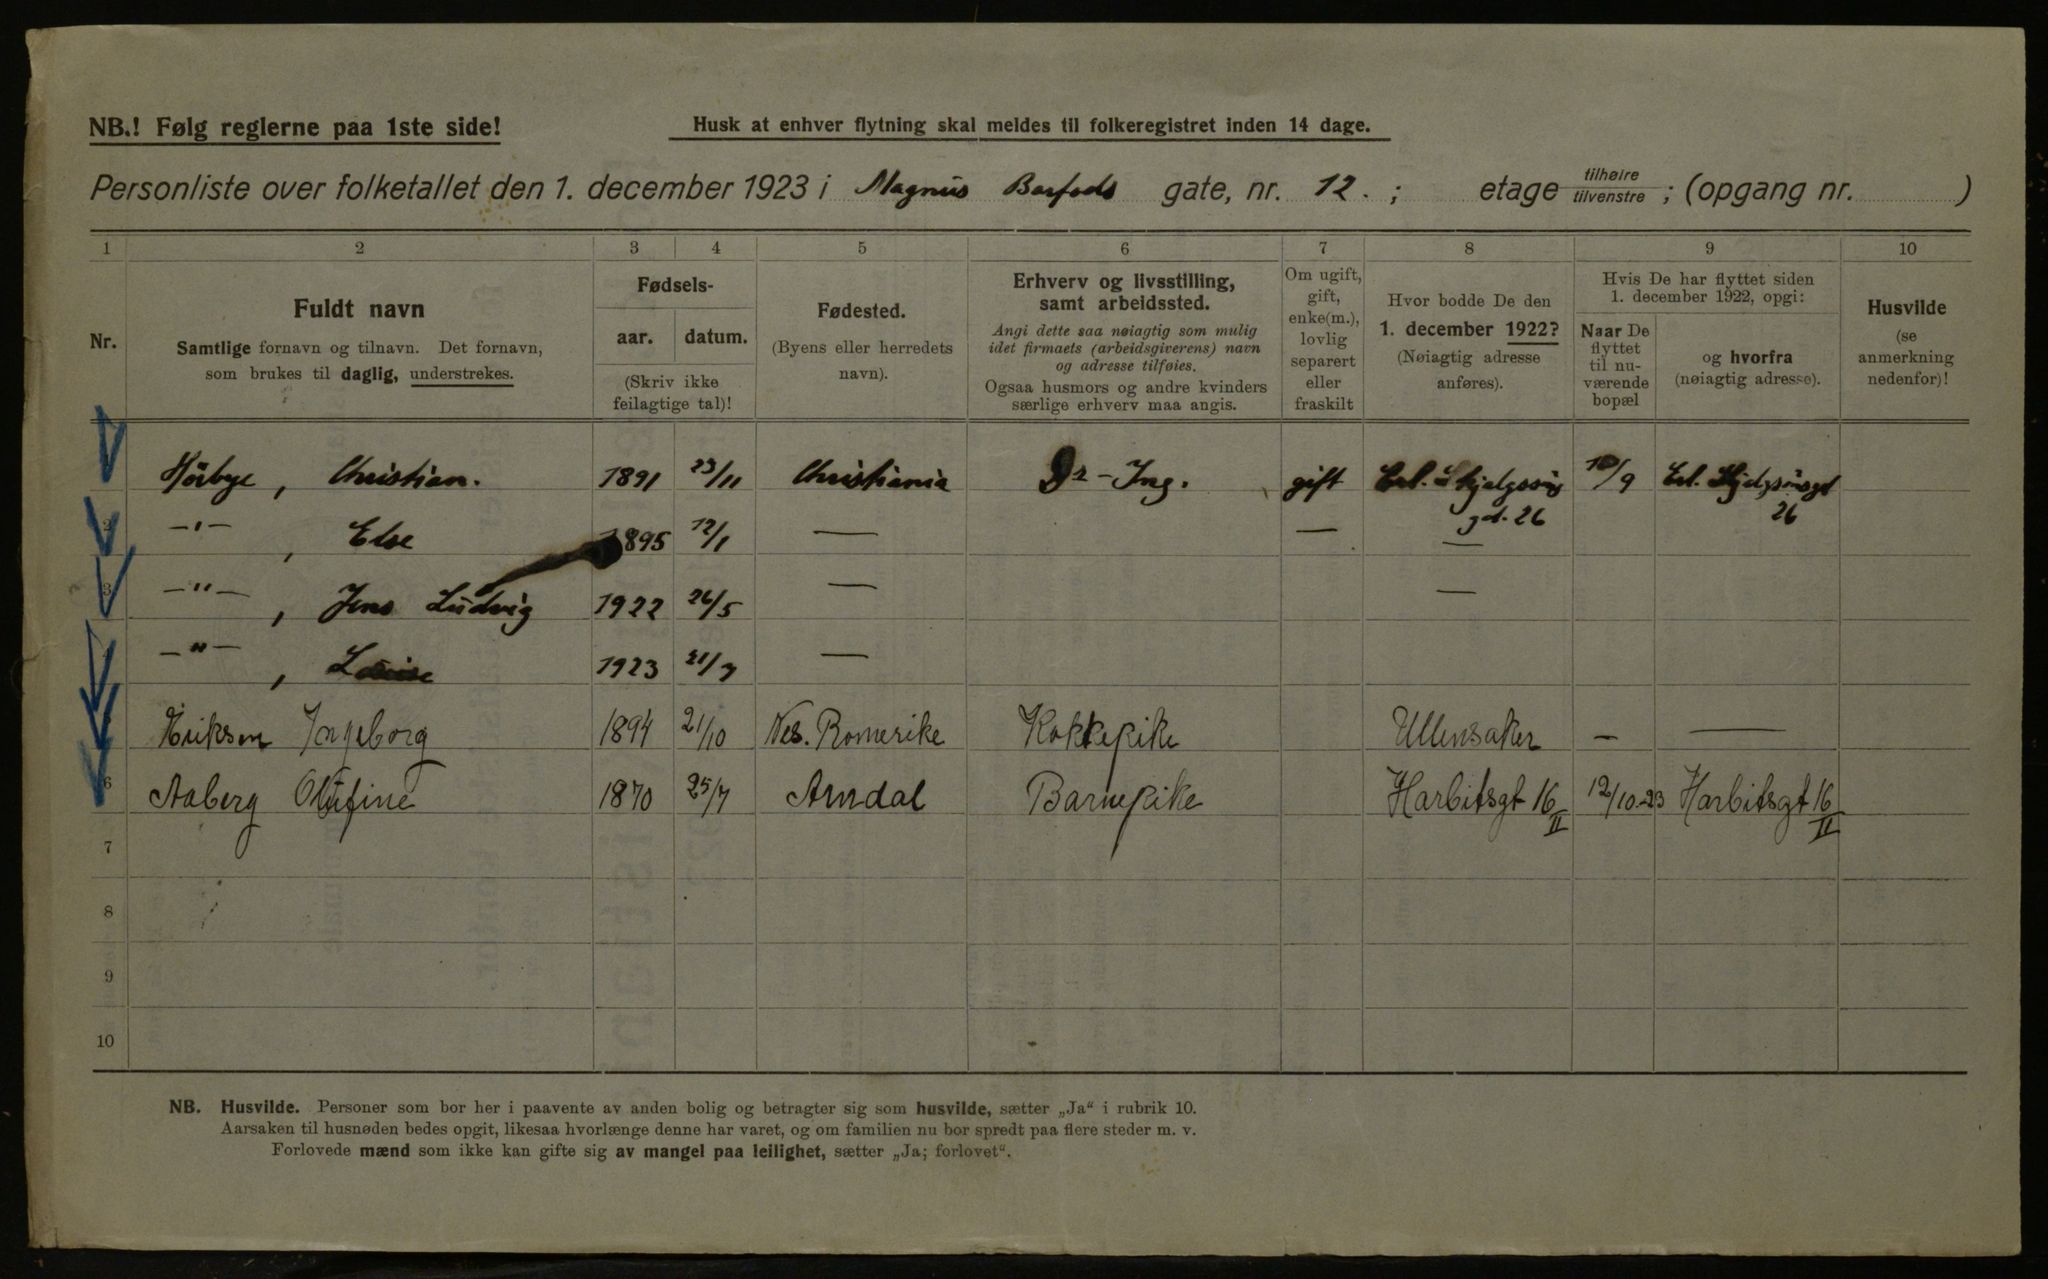 NB.! Følg reglerne paa 1ste side!
Husk at enhver flytning skal meldes til folkeregistret inden 14 dage.
Personliste over folketallet den 1. december 1923 i Magnus Barfods gate, nr. 12. ; etage tilhøire tilvenstre ; (opgang nr. )
1 2 3 4 5 6 7 8 9 10
Nr.
Fuldt navn
Samtlige fornavn og tilnavn. Det fornavn,
som brukes til daglig, understrekes.
Fødsels-
aar. datum.
(Skriv ikke
feilagtige tal)!
Fødested.
(Byens eller herredets
navn).
Erhverv og livsstilling,
samt arbeidssted.
Angi dette saa nøiagtig som mulig
idet firmaets (arbeidsgiverens) navn
og adresse tilføies.
Ogsaa husmors og andre kvinders
særlige erhverv maa angis.
Om ugift,
gift,
enke(m.),
lovlig
separert
eller
fraskilt
Hvor bodde De den
1. december 1922?
(Nøiagtig adresse
anføres).
Hvis De har flyttet siden
1. december 1922, opgi:
Naar De
flyttet
til nu-
værende
bopæl
og hvorfra
(nøiagtig adresse).
Husvilde
(se
anmerkning
nedenfor)!
Hörbye, Christian. 1891 23/11 Christiania Dr-Ing. gift Erl. Skjalgssøns 10/9 Erl. Skjalgsønsgt
gd. 26 26
2 —"— , Else 1895 12/1 — — —
3 —"— , Jens Ludvig 1922 26/5 — —
—"— , Louise 1923 21/7 —
Eriksen Ingeborg 1894 21/10 Nes. Romerike Kokkepike Ullensaker — —
6 Aaberg Olufine 1870 25/7 Arndal Barnepike Harbitsgt 16 II 12/10-23 Harbitsgt 16 II
7
8
9
10
NB. Husvilde. Personer som bor her i paavente av anden bolig og betragter sig som husvilde, sætter „Ja“ i rubrik 10.
Aarsaken til husnøden bedes opgit, likesaa hvorlænge denne har varet, og om familien nu bor spredt paa flere steder m. v.
Forlovede mænd som ikke kan gifte sig av mangel paa leilighet, sætter „Ja; forlovet“.